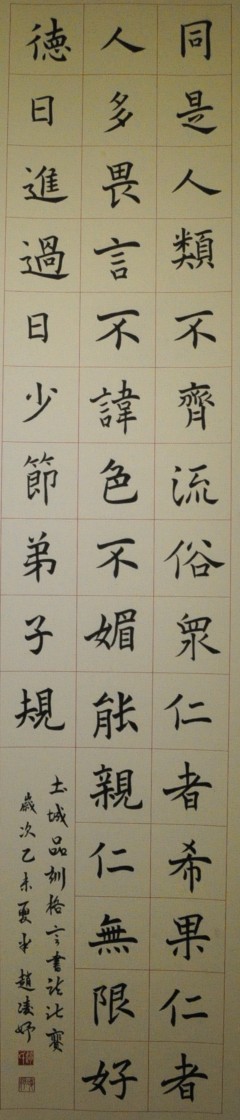 同是人類不齊流俗眾仁者希果仁者
人多畏言不諱色不媚能親仁無限好
德日進過日少節弟子規
土城品訓格言書於比賽
歲次乙未夏 趙凌妤